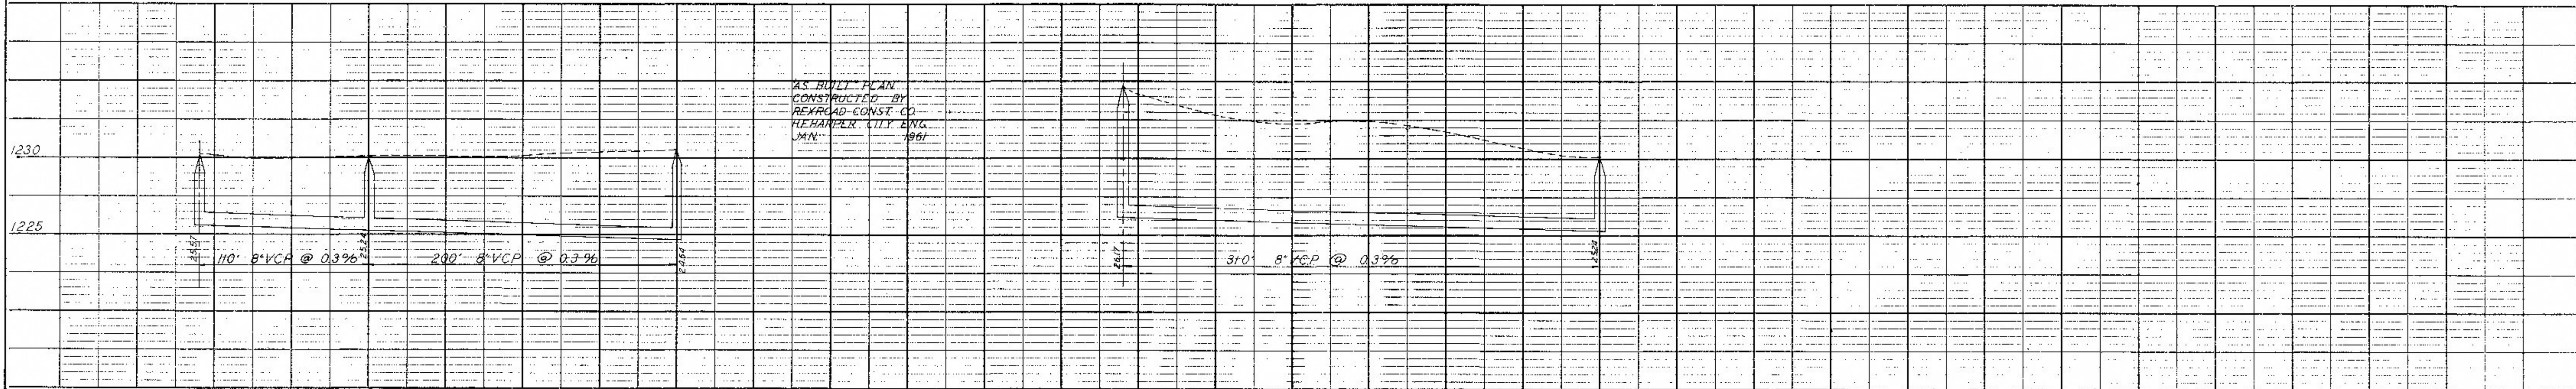 "AS BUILT" PLAN
CONSTRUCTED BY
REXROAD CONST. CO.
H.E. HARPER CITY ENG.
JAN. 1961
1230
1225
25.57
110' 8" VCP @ 0.3%
25.24
200' 8" VCP @ 0.3%
24.64
26.17
310' 8" VCP @ 0.3%
25.24